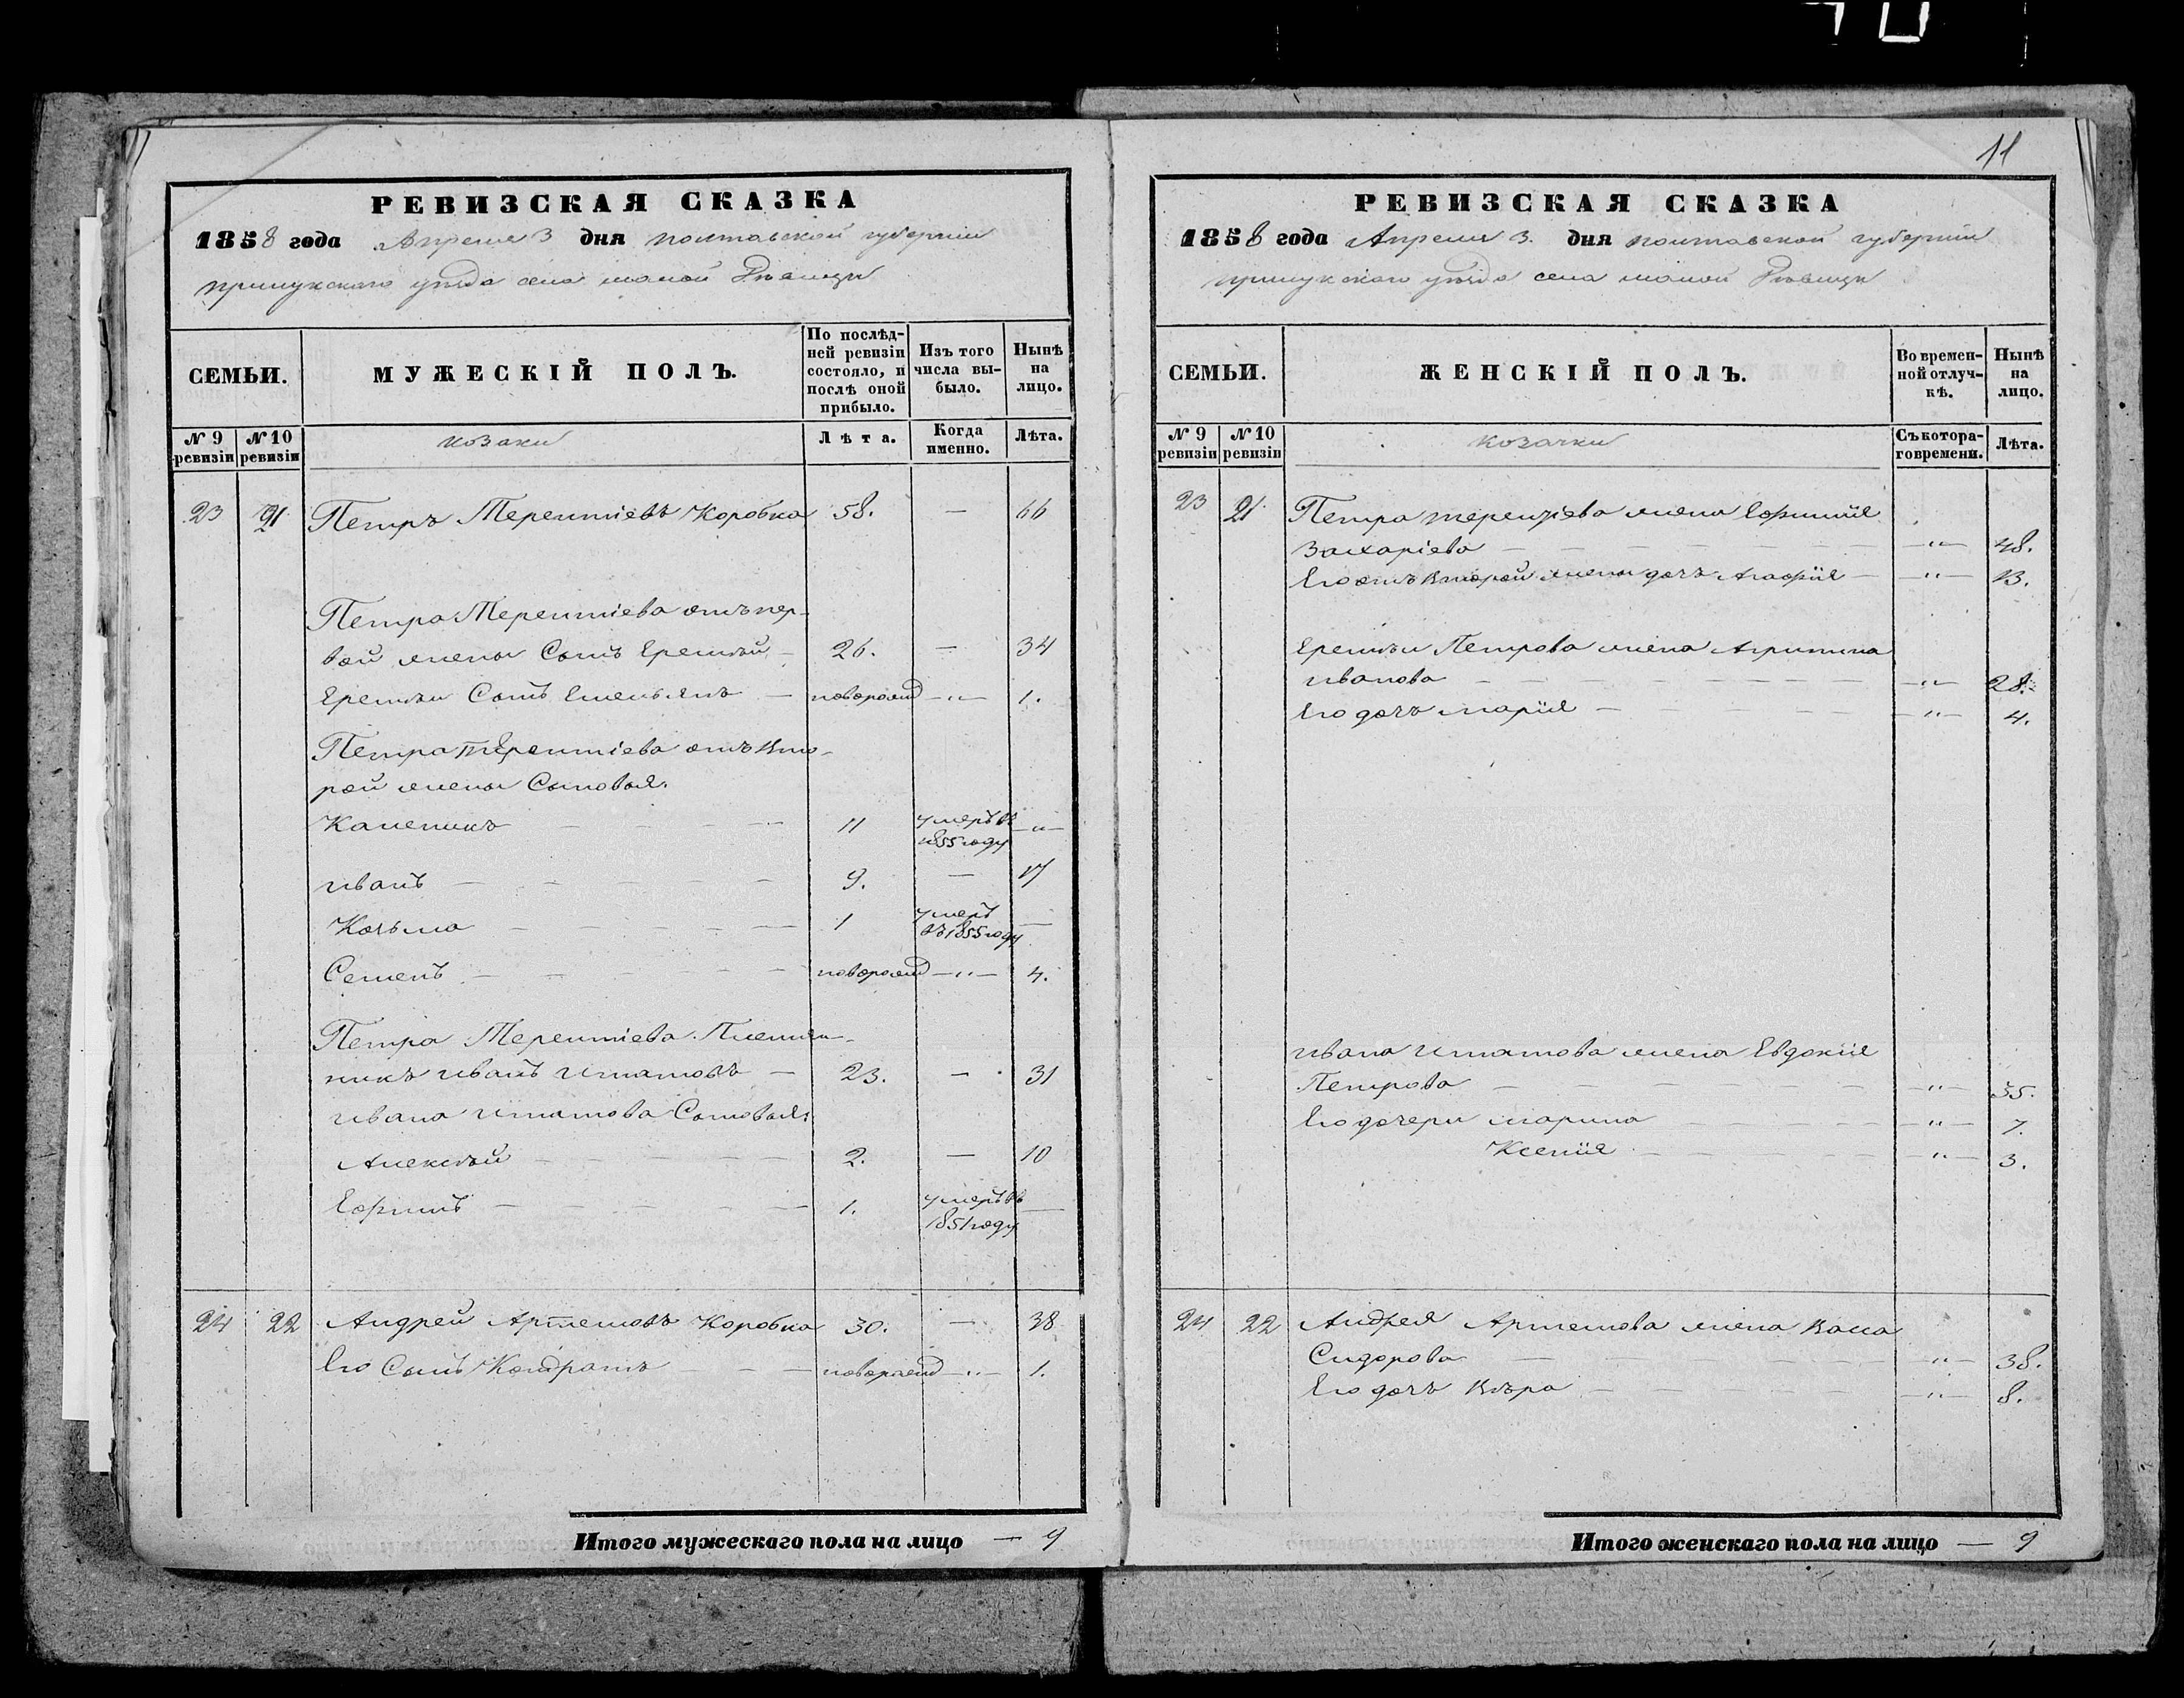 11
РЕВИЗСКАЯ СКАЗКА
1858 года Апреля 3 дня полтавской губернии
прилукского уѣзда села малой Дѣвицы
СЕМЬИ.
МУЖЕСКІЙ ПОЛЪ.
По послѣд-
ней ревизіи
состояло, и
послѣ оной
прибыло.
Изъ того
числа вы-
было.
Нынѣ
на
лицо.
№ 9
ревизіи
№ 10
ревизіи
козаки
Лѣта.
Когда
именно.
Лѣта.
23 21 Петръ Терентіевъ Коробка 58. — 66
Петра Терентіева отъ пер-
вой жены Сынъ Еремѣй — 26. — 34
Еремѣи Сынъ Емельянъ — новорожд —"— 1.
Петра терентіева отъ вто-
рой жены Сыновья:
Каленикъ — 11 умеръ въ 1855 году —"—
иванъ — 9. — 17
Козьма — 1 умеръ въ 1855 году —
Семенъ — новорожд —"— 4.
Петра Терентіева Племян-
никъ иванъ игнатовъ — 23. — 31
ивана игнатова Сыновья:
Алексѣй — 2. — 10
Ефимъ — 1. умеръ въ 1851 году —
24 22 Андрей Артемовъ Коробка 30. — 38
Его Сынъ Кондратъ — новорожд —"— 1.
Итого мужескаго пола на лицо — 9
РЕВИЗСКАЯ СКАЗКА
1858 года Апреля 3. дня полтавской губернии
прилукскаго уѣзда села малой Дѣвицы
СЕМЬИ.
ЖЕНСКІЙ ПОЛЪ.
Во времен-
ной отлуч-
кѣ.
Нынѣ
на
лицо.
№ 9
ревизіи
№ 10
ревизіи
козачки
Съ котора-
го времени.
Лѣта.
23 21 Петра терентіева жена Ефимія
Захаріева — —"— 48.
Его отъ второй жены дочъ Агафія — —"— 13.
Еремѣи Петрова жена Агрипина
иванова — —"— 28.
Его дочъ марія — —"— 4.
ивана игнатова жена Евдокія
Петрова — —"— 35.
Его дочери марина — —"— 7.
Ксенія — —"— 3.
24 22 Андрея Артемова жена Васа
Сидорова — —"— 38.
Его дочъ Вѣра — —"— 8.
Итого женскаго пола на лицо — 9